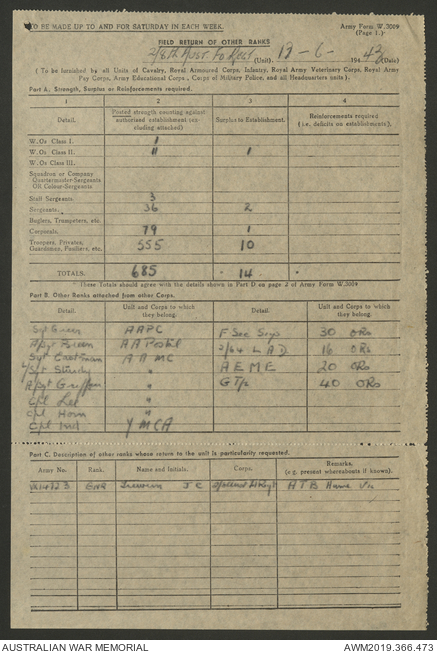 TO BE MADE UP TO AND FOR SATURDAY IN EACH WEEK. Army Form W.3009
(Page 1.)
FIELD RETURN OF OTHER RANKS
2/8th Aust Fd Regt (Unit) 12-6- 1943 (Date)
(To be furnished by all Units of Cavalry, Royal Armoured Corps, Infantry, Royal Army Veterinary Corps, Royal Army
Pay Corps, Army Educational Corps, Corps of Military Police, and all Headquarters units).
Part A. Strength, Surplus or Reinforcements required.
1 2 3 4
Detail. Posted strength counting against authorised establishment (excluding attached) Surplus to Establishment. Reinforcements required (i.e. deficits on establishments).
W.Os Class I. 1
W.Os Class II. 11 1
W.Os Class III.
Squadron or Company
Quartermaster-Sergeants
OR Colour-Sergeants
Staff Sergeants 3
Sergeants. 36 2
Buglers, Trumpeters, etc.
Corporals. 79 1
Troopers, Privates, 555 10
Guardsmen, Fusiliers, etc.
TOTALS. 685 14
These Totals should agree with the details shown in Part D on page 2 of Army Form W.3009
Part B. Other Ranks attached from other Corps.
Detail. Unit and Corps to which they belong. Detail. Unit and Corps to which they belong.
Sgt Green AAPC F Sec Sigs 30 ORs
A/Sgt AA Postal 2/64 LAD 16 ORs
Sgt Eastman AAMC AEME 20 ORs
L/Sgt " G Tps 40 ORs
A/Sgt Griffin "
Cpl Lee "
Cpl Horn "
Cpl YMCA
Part C. Description of other ranks whose return to the unit is particularity requested.
Army No. Rank. Name and Initials. Corps. Remarks. (e.g. present whereabouts if known).
GNR J C HTB Vic
AUSTRALIAN WAR MEMORIAL AWM2019.366.473